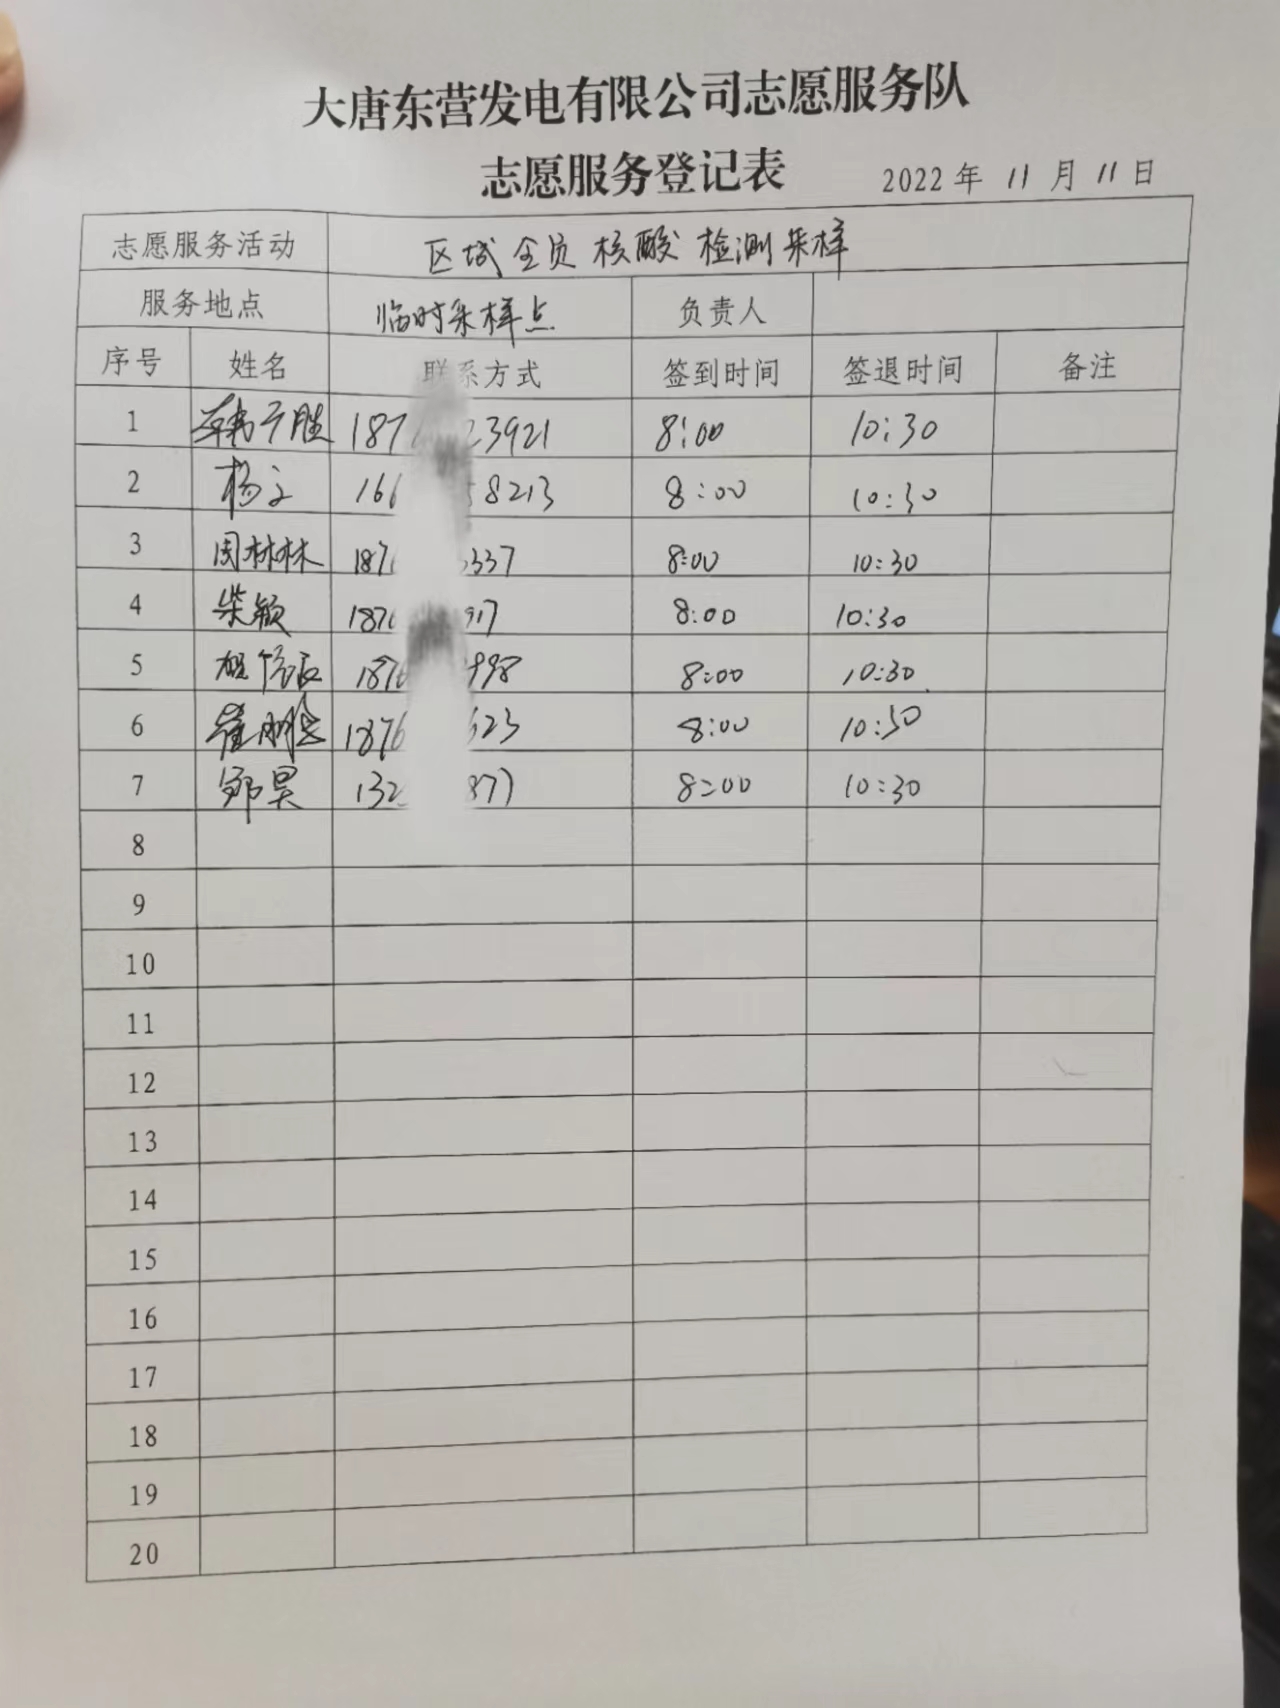 大唐东营发电有限公司志愿服务队
志愿服务登记表 2022年 11 月 11 日
志愿服务活动 区域全员核酸检测采样
服务地点 临时采样点 负责人
序号 姓名 联系方式 签到时间 签退时间 备注
1 韩广胜 187 23921 8:00 10:30
2 杨文 166 58213 8:00 10:30
3 周林林 187 3337 8:00 10:30
4 柴颖 187 917 8:00 10:30
5 1876 998 8:00 10:30
6 崔鹏 1876 523 8:00 10:30
7 邹昊 132 877 8:00 10:30
8
9
10
11
12
13
14
15
16
17
18
19
20